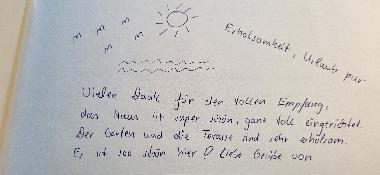 Erholsamkeit, Urlaub pur
Vielen Dank für den tollen Empfang,
das Haus ist super schön, ganz toll eingerichtet.
Der Garten und die Terasse sind sehr erholsam.
Es ist soo schön hier! Liebe Grüße von